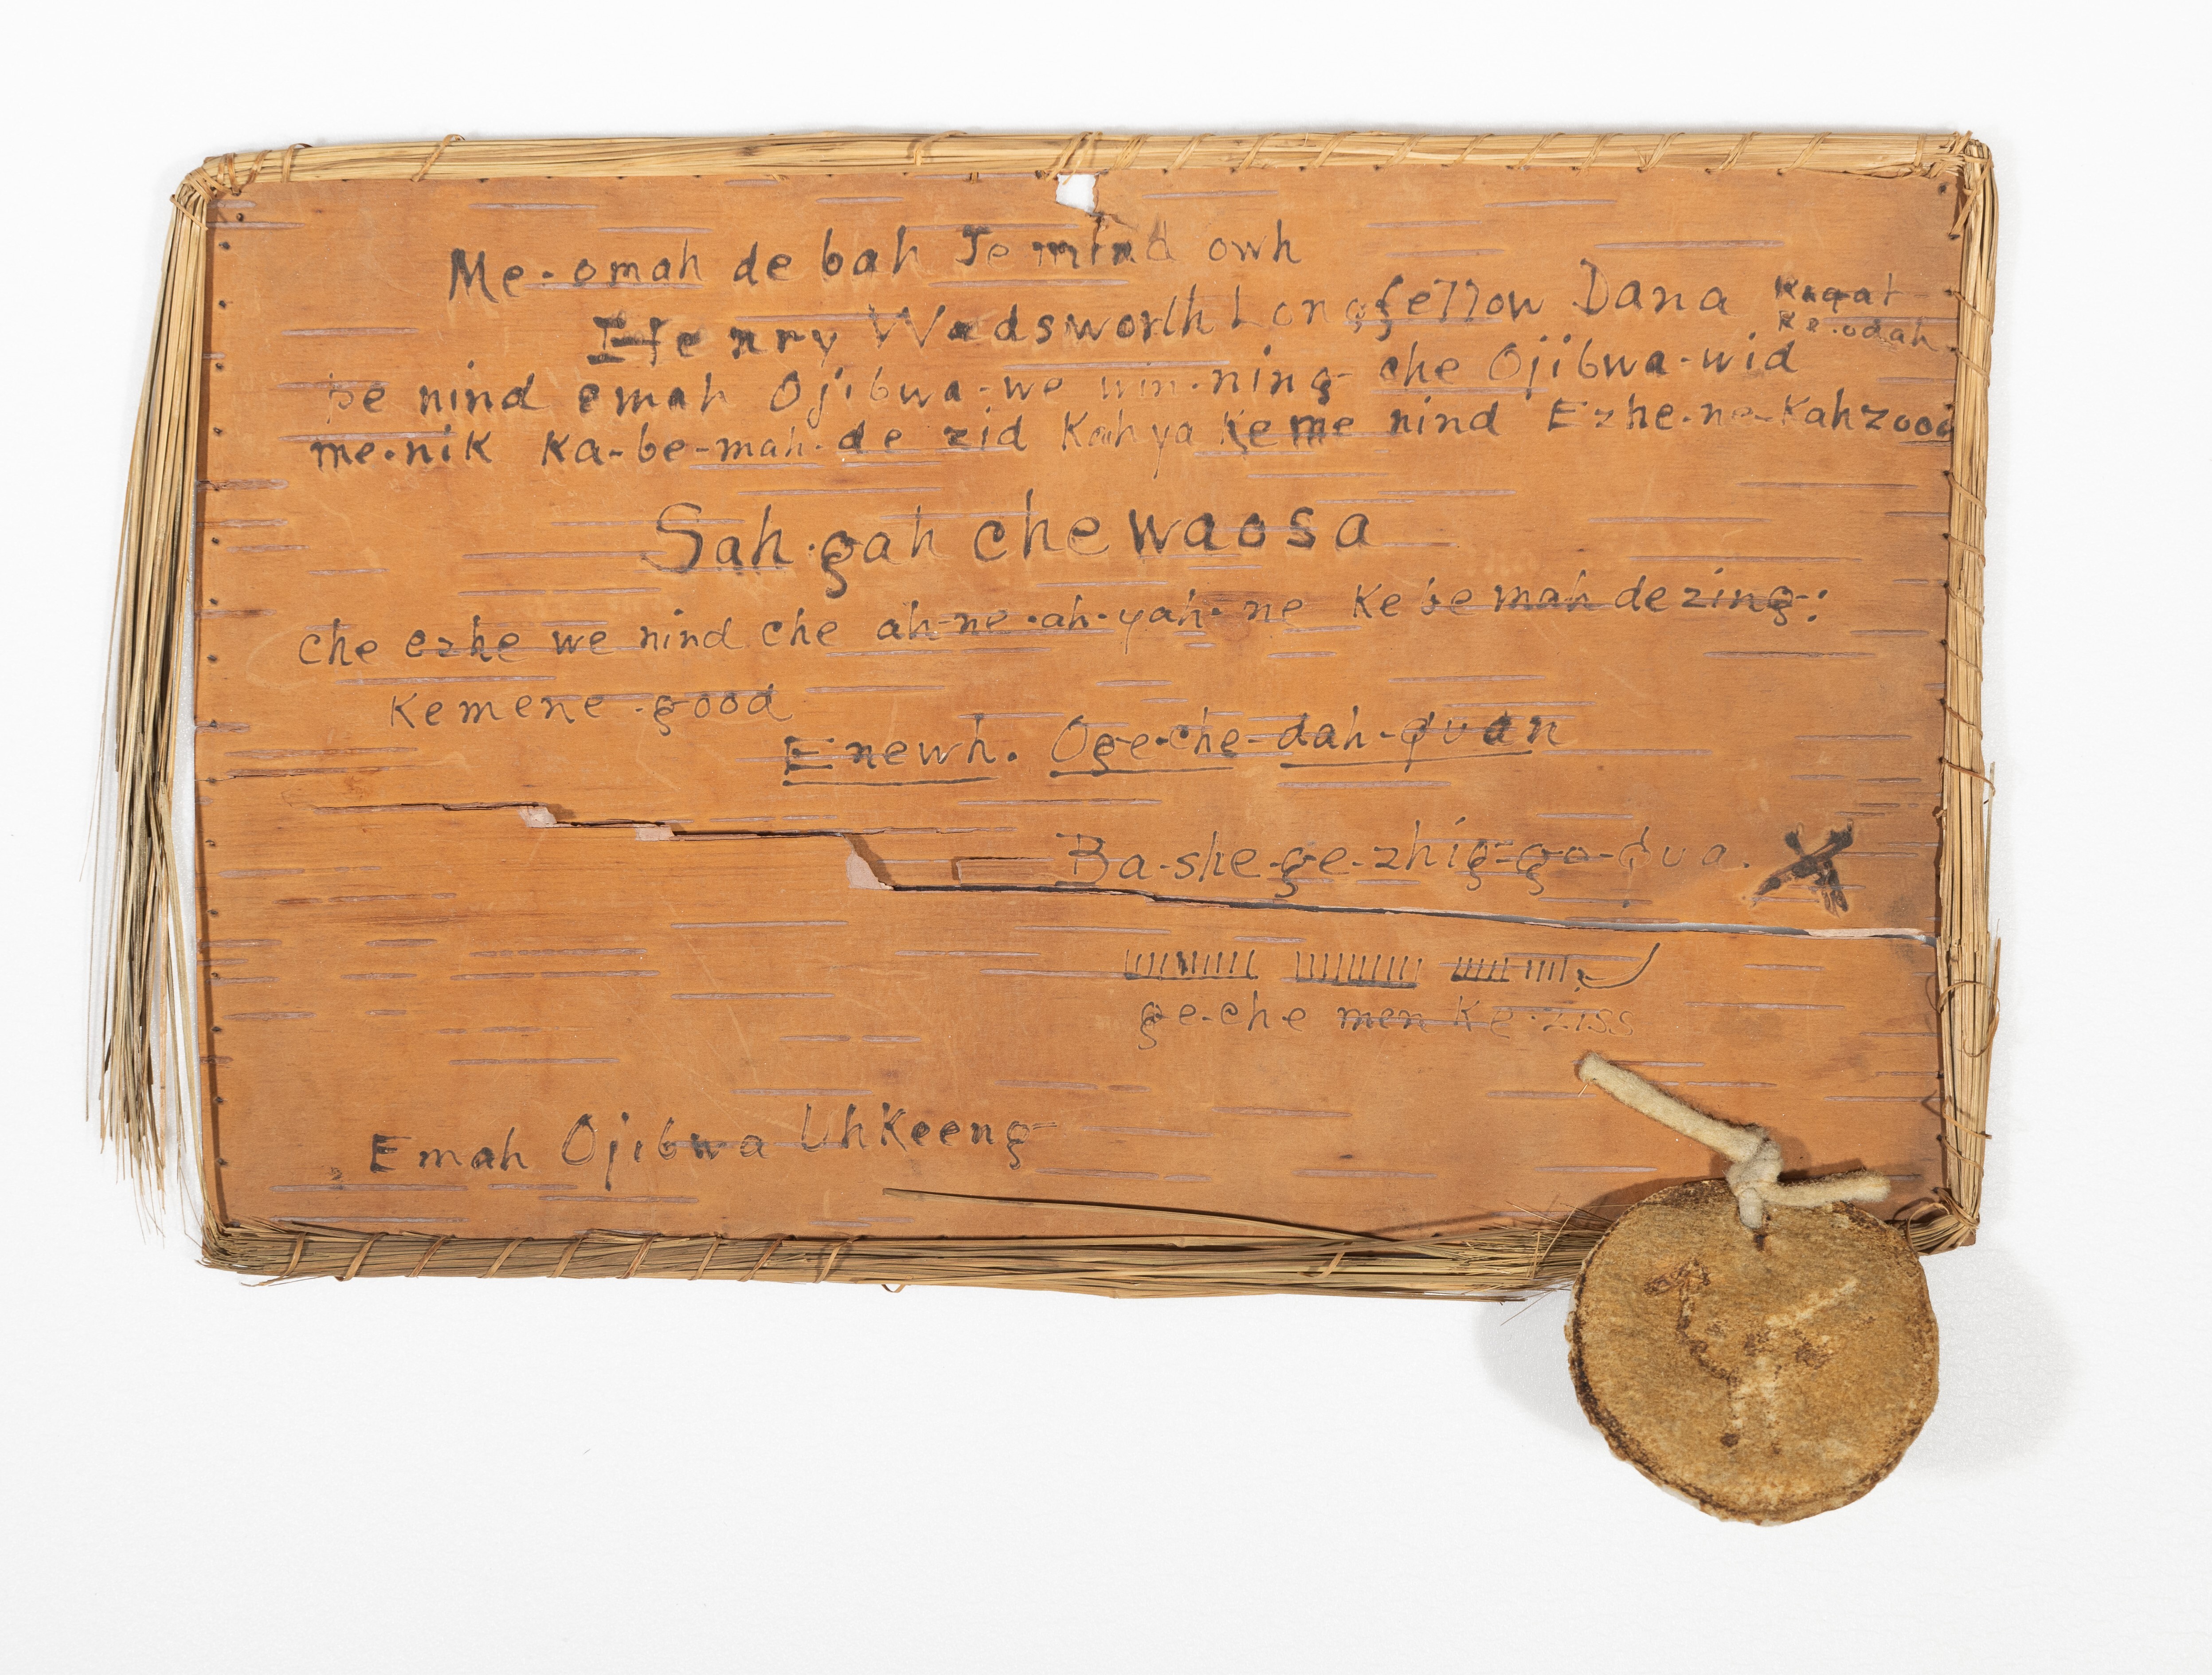 Me-omah de bah Je mind owh
Henry Wadsworth Longfellow Dana Kagat
Ke-odah
be nind emah Ojibwa-we win-ning che Ojibwa-wid
me-nik Ka-be-mah-de zid Kahya Keme nind Ezhe-ne-Kahzood
Sah-gah chewaosa
che ezhe we nind che ah-ne-ah-yah-ne Kebemah dezing:
Kemene-good
Enewh. Oge-che-dah-quan
Ba-she-ge-zhig-go-qua. X
ge-che men Ke-ziss
Emah Ojibwa UhKeeng